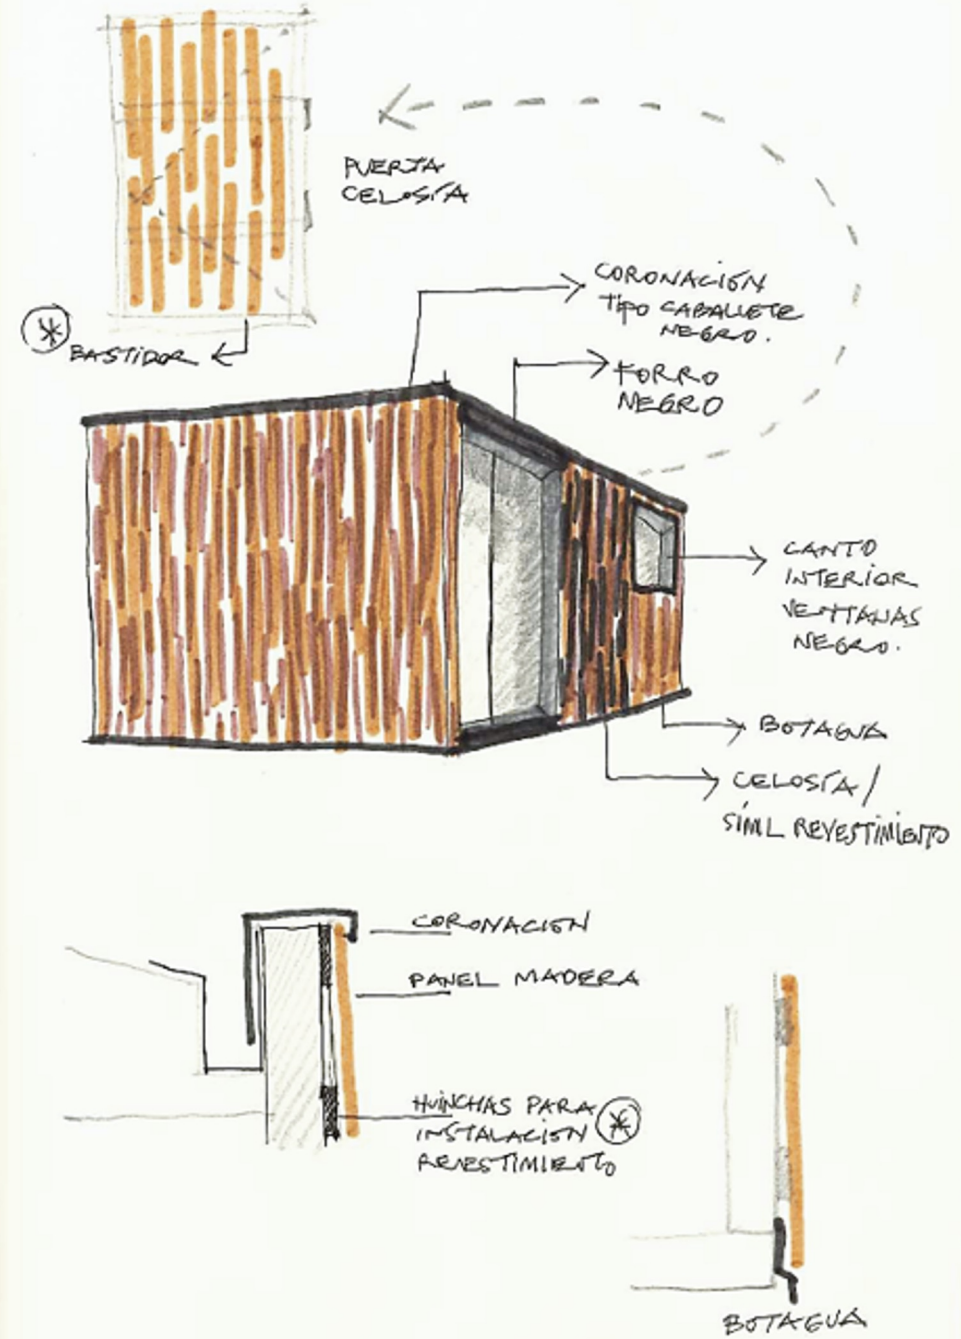 PUERTA
CELOSÍA
CORONACIÓN
TIPO CABALLETE
NEGRO.
* BASTIDOR
FORRO
NEGRO
CANTO
INTERIOR
VENTANAS
NEGRO.
BOTAGUA
CELOSÍA/
SÍMIL REVESTIMIENTO
CORONACIÓN
PANEL MADERA
HUINCHAS PARA
INSTALACIÓN *
REVESTIMIENTO
BOTAGUA